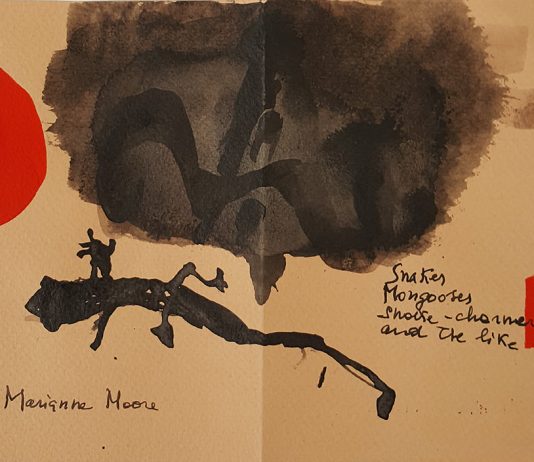 Snakes
Mongooses
Snake-charmer
and the like
Marianne Moore